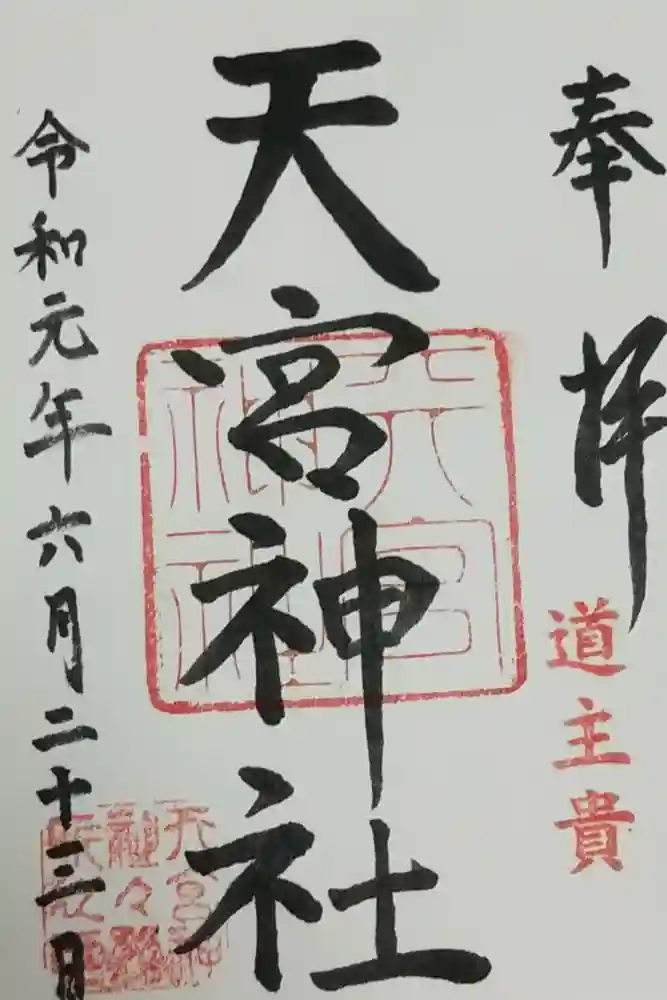 奉拝
道主貴
天宮神社
天宮神社
令和元年六月二十三日